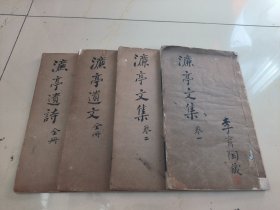 濂亭文集 卷一
李育陶藏
濂亭文集 卷二
濂亭遺文 全册
濂亭遺詩 全册